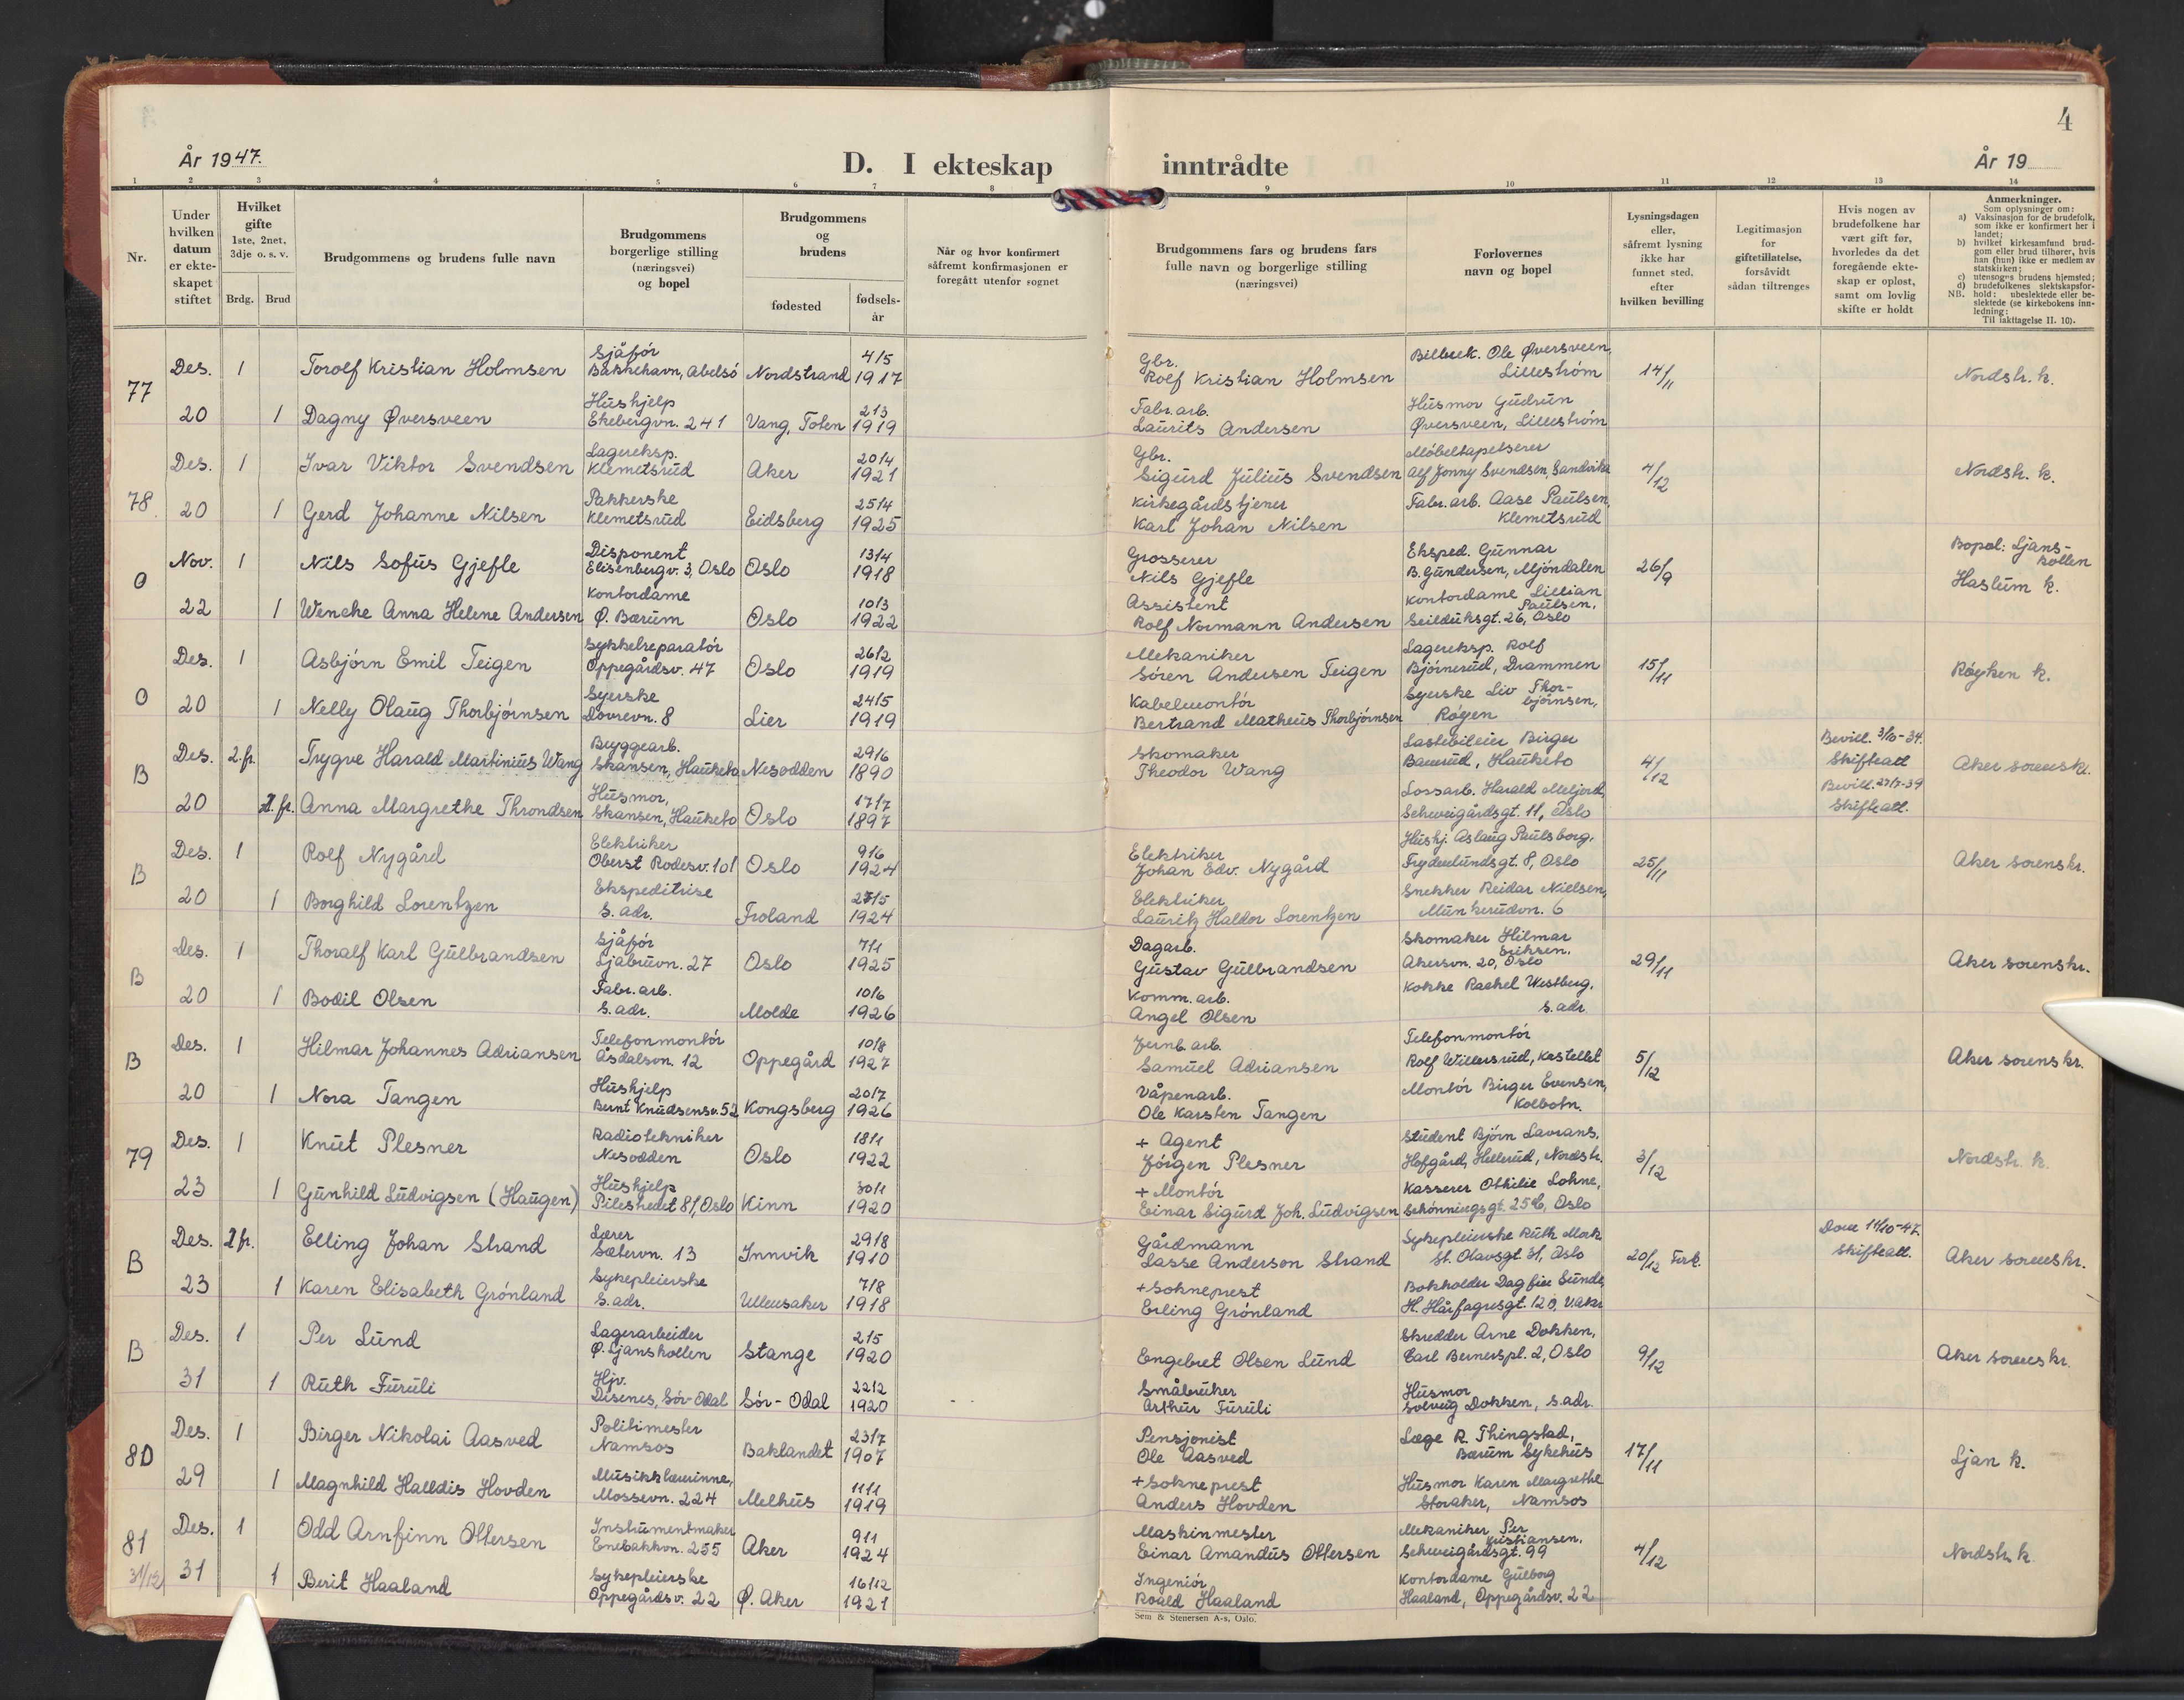 4
År 1947.
D. I ekteskap inntrådte
År 19
1 2 3 4 5 6 7 8 9 10 11 12 13 14
Nr.
Under hvilken datum er ekte-skapet stiftet
Hvilket gifte 1ste, 2net, 3dje o. s. v.
Brdg. Brud
Brudgommens og brudens fulle navn
Brudgommens borgerlige stilling (næringsvei) og bopel
Brudgommens og brudens
fødested
fødsels-år
Når og hvor konfirmert såfremt konfirmasjonen er foregått utenfor sognet
Brudgommens fars og brudens fars fulle navn og borgerlige stilling (næringsvei)
Forlovernes navn og bopel
Lysningsdagen eller, såfremt lysning ikke har funnet sted, efter hvilken bevilling
Legitimasjon for giftetillatelse, forsåvidt sådan tiltrenges
Hvis nogen av brudefolkene har vært gift før, hvorledes da det foregående ekte-skap er opløst, samt om lovlig skifte er holdt
Anmerkninger.
Som oplysninger om:
a) Vaksinasjon for de brudefolk, som ikke er konfirmert her i landet;
b) hvilket kirkesamfund brud-gom eller brud tilhører, hvis han (hun) ikke er medlem av statskirken;
c) utensogns brudens hjemsted;
d) brudefolkenes slektskapsfor-hold: ubeslektede eller be-slektede (se kirkebokens inn-ledning:
NB.
Til iakttagelse II. 10).
77 Des. 1 Torolf Kristian Holmsen Sjåfør Bakkehavn, Abelsø Nordstrand 4/5 1917 Gbr. Rolf Kristian Holmsen Ole Øversveen, Lillestrøm 14/11 Nordstr. k.
20 1 Dagny Øversveen Hushjelp Ekebergvn. 241 Vang, Toten 2/3 1919 Fabr. arb. Laurits Andersen Husmor Gudrun Øversveen, Lillestrøm
78 Des. 1 Ivar Viktor Svendsen Lagereksp. Klemetsrud Aker 20/4 1921 Gbr. Sigurd Julius Svendsen Møbeltapetserer Alf Jonny Svendsen, Sandvika 4/12 Nordstr. k.
20 1 Gerd Johanne Nilsen Pakkerske Klemetsrud Eidsberg 25/4 1925 Kirkegårdstjener Karl Johan Nilsen Fabr. arb. Aase Paulsen, Klemetsrud
O Nov. 1 Nils Sofus Gjefle Disponent Elisenbergv. 3, Oslo Oslo 13/4 1918 Grosserer Nils Gjefle Eksped. Gunnar B. Gundersen, Mjøndalen 26/9 Bopel: Ljans-kollen Haslum k.
22 1 Wenche Anna Helene Andersen Kontordame Ø. Bærum Oslo 10/3 1922 Assistent Rolf Normann Andersen Kontordame Lillian Paulsen, Seilduksgt. 26, Oslo
O Des. 1 Asbjørn Emil Teigen Sykkelreparatør Oppegårdsv. 47 Oslo 26/2 1919 Mekaniker Søren Andersen Teigen Lagereksp. Rolf Bjørnerud, Drammen 15/11 Røyken k.
20 1 Nelly Olaug Thorbjørnsen Syerske Dovrevn. 8 Lier 24/5 1919 Kabelmontør Bertrand Matheus Thorbjørnsen Syerske Liv Thor-bjørnsen, Røyen
B Des. 2. fr. Trygve Harald Martinius Wang Bryggearb. Skansen, Hauketo Nesodden 29/6 1890 Skomaker Theodor Wang Lastebileier Birger Hauketo 4/12 Bevill. 3/10-34. Skifteatt Aker sorenskr.
20 2. fr. Anna Margrethe Throndsen Husmor, Skansen, Hauketo Oslo 17/7 1897 Lossarb. Harald Meljord, Schweigårdsgt. 11, Oslo Bevill. 27/7-39 Skifteatt.
B Des. 1 Rolf Nygård Elektriker Oberst Rodesv. 101 Oslo 9/6 1924 Elektriker Johan Edv. Nygård Hushj. Aslaug Paulsborg, Frydenlundsgt. 8, Oslo 25/11 Aker sorenskr.
20 1 Borghild Lorentzen Ekspeditrise s. adr. Froland 27/5 1924 Elektriker Lauritz Haldor Lorentzen Snekker Reidar Nielsen, Munkerudvn. 6
B Des. 1 Thoralf Karl Gulbrandsen Sjåfør Ljabruvn. 27 Oslo 7/1 1925 Dagarb. Gustav Gulbrandsen Skomaker Hilmar Eriksen, Akersvn. 20, Oslo 29/11 Aker sorenskr.
20 1 Bodil Olsen Fabr. arb. s. adr. Molde 10/6 1926 Komm. arb. Angel Olsen Kokke Rachel Westberg, s. adr
B Des. 1 Hilmar Johannes Adriansen Telefonmontør Åsdalsvn. 12 Oppegård 10/8 1927 Jernb. arb. Samuel Adriansen Telefonmontør Rolf Willersrud, Kastellet 5/12 Aker sorenskr.
20 1 Nora Tangen Hushjelp Bernt Knudsensv. 52 Kongsberg 20/7 1926 Våpenarb. Ole Karsten Tangen Montør Birger Evensen, Kolbotn.
79 Des. 1 Knut Plesner Radiotekniker Nesodden Oslo 18/1 1922 + Agent Jørgen Plesner Student Bjørn Lavrans. Hofgård, Hellerud, Nordstr. 3/12 Nordstr. k.
23 1 Gunhild Ludvigsen (Haugen) Hushjelp Pilestredet 81, Oslo Kinn 30/1 1920 + Montør Einar Sigurd Joh. Ludvigsen Kasserer Othilie Lohne, Schønningsgt. 25b, Oslo
B Des. 2 fr. Elling Johan Strand Lærer Sætervn. 13 Innvik 29/8 1910 Gårdmann Lasse Anderson Strand Sykepleierske Ruth Mork St. Olavsgt 31, Oslo 20/12 Dom 11/10-47. Skifteatt. Aker sorenskr.
23 1 Karen Elisabeth Grønland Sykepleierske s. adr. Ullensaker 7/8 1918 + Sokneprest Erling Grønland Bokholder Dagfinn Sunde, H. Hårfagresgt. 12
B Des. 1 Per Lund Lagerarbeider Ø. Ljanskollen Stange 2/5 1920 Engebret Olsen Lund Skredder Arne Dokken, Carl Bernerspl. 2, Oslo 9/12 Aker sorenskr.
31 1 Ruth Furuli Hjv. Disenes, Sør-Odal Sør-Odal 22/2 1920 Småbruker Arthur Furuli Husmor Solveig Dokken, s. adr.
80 Des. 1 Birger Nikolai Aasved Politimester Namsos Baklandet 23/7 1907 Pensjonist Ole Aasved Læge R. Thingstad, Bærum Sykehus 17/11 Ljan k.
29 1 Magnhild Halldis Hovden Musikklærerinne, Mossevn. 224 Melhus 11/1 1919 + Sokneprest Anders Hovden Husmor Karen Margrethe Storaker, Namsos
81 Des. 1 Odd Arnfinn Ottersen Instrumentmaker Enebakkvn. 255 Aker 9/1 1924 Maskinmester Einar Amandus Ottersen Mekaniker Per Kristiansen, Schweigårdsgt. 99 4/12 Nordstr. k
31/12 31 1 Berit Haaland Sykepleierske Oppegårdsv. 22 Ø. Aker 16/12 1921 Ingeniør Roald Haaland Kontordame Gulborg Haaland, Oppegårdsv. 22
Sem & Stenersen A-s, Oslo.